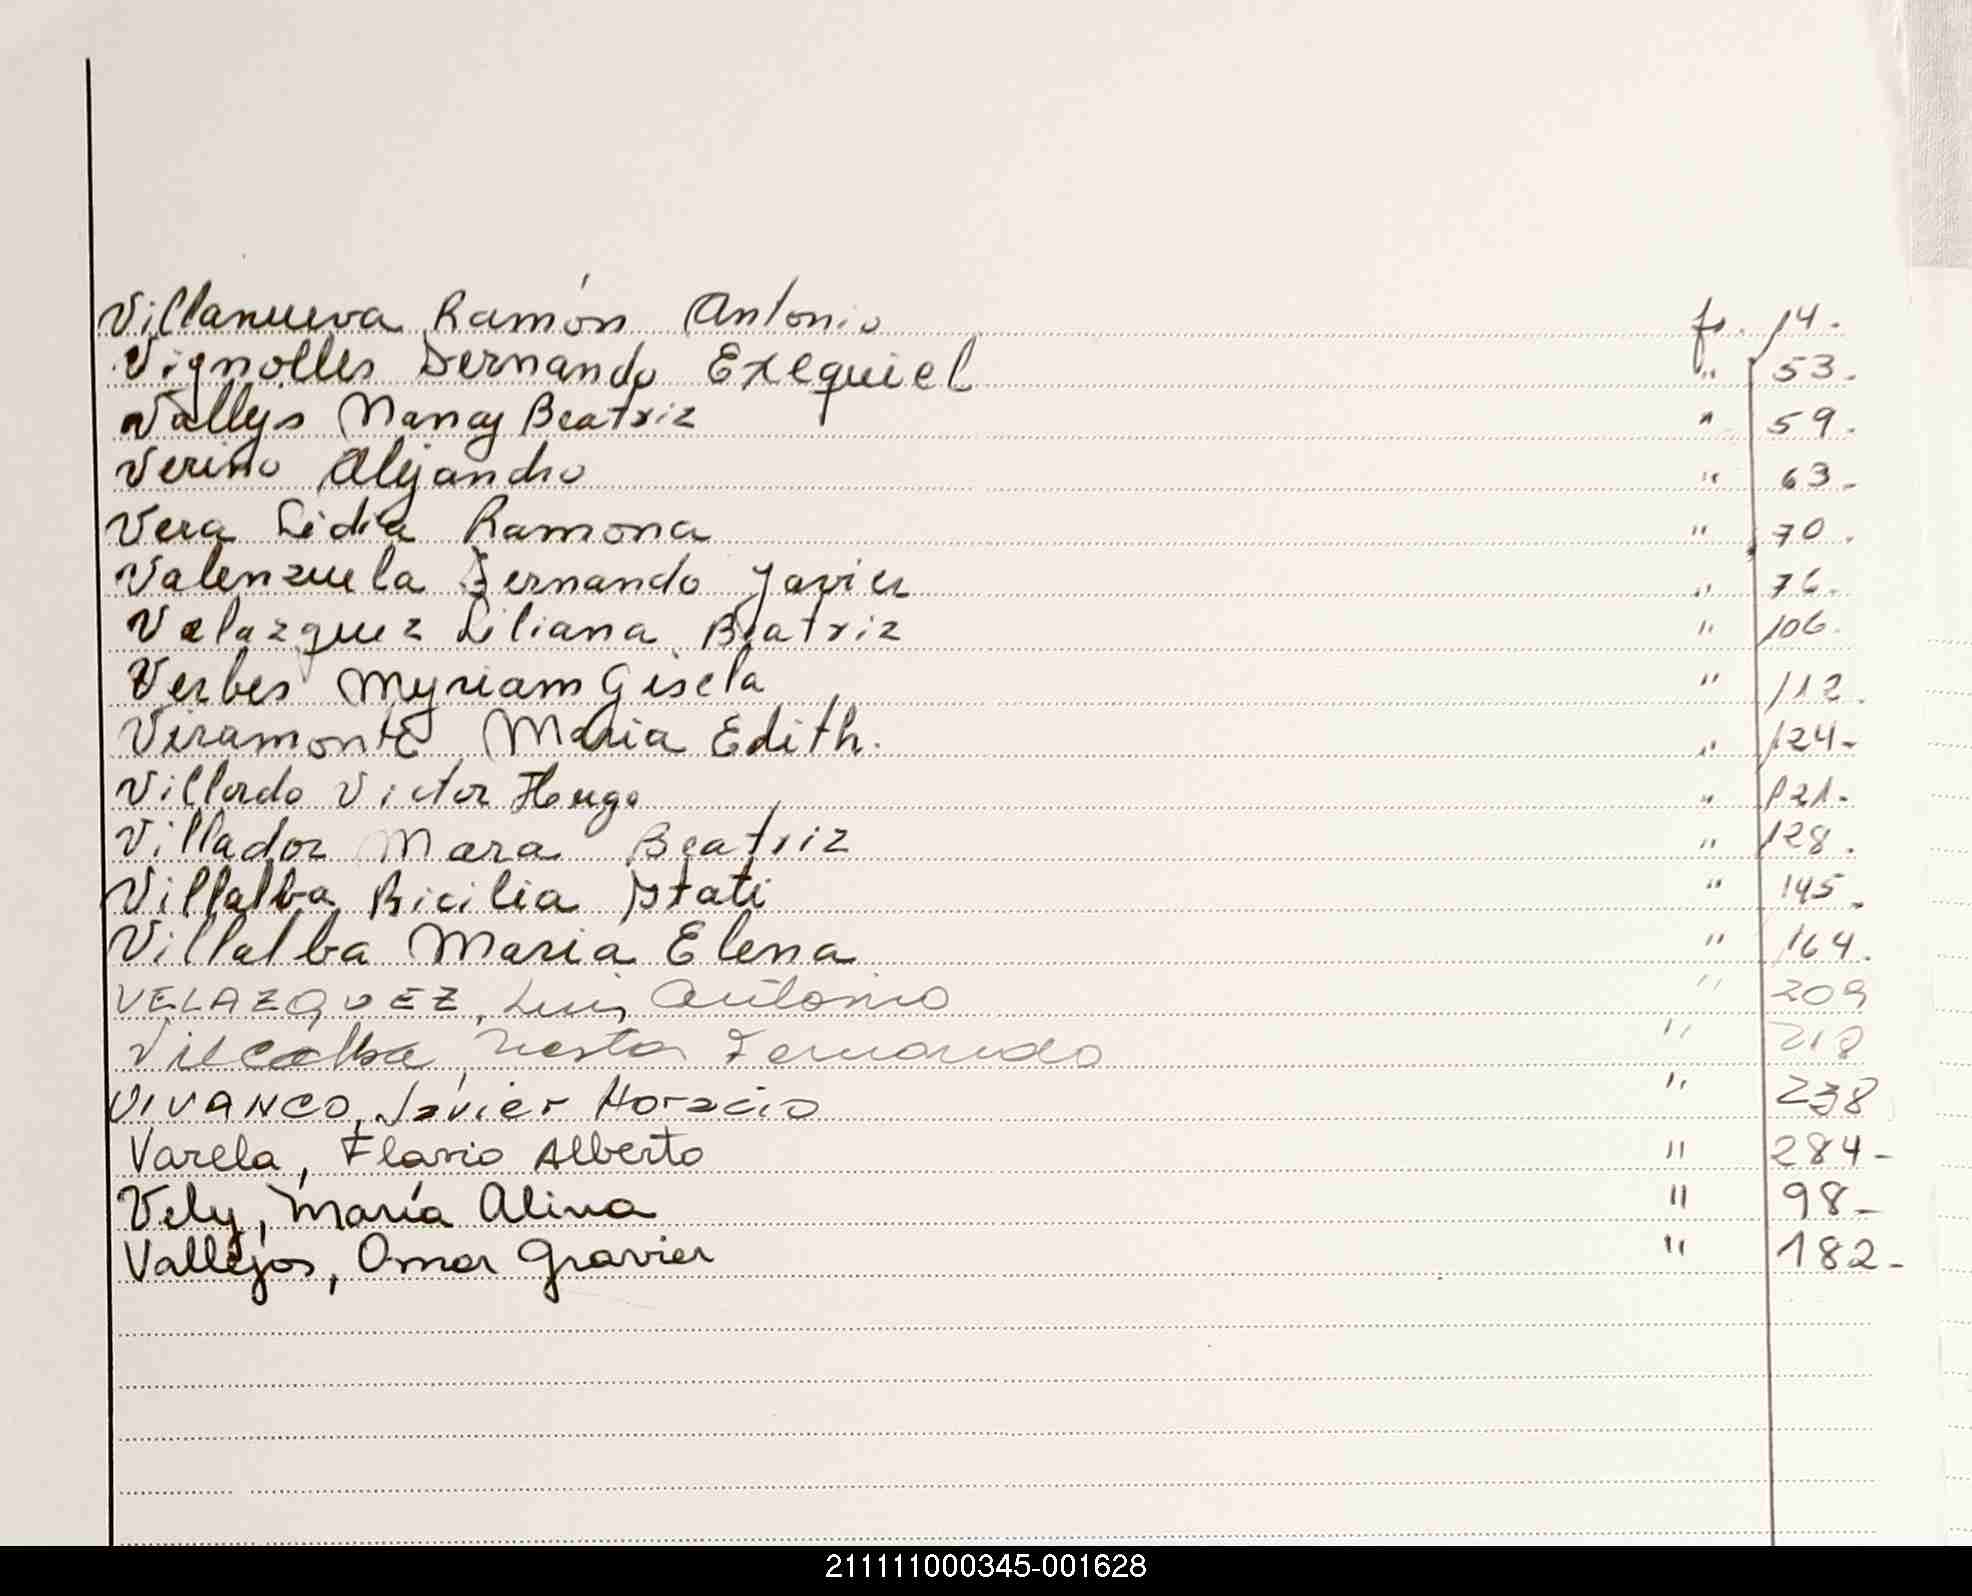 Villanueva Ramón Antonio fs. 14.
Vignolles Fernando Exequiel " 53.
Vallys Nancy Beatriz " 59.
Verino Alejandro " 63.
Vera Lidia Ramona " 70.
Valenzuela Fernando Javier " 76.
Velazquez Liliana Beatriz " 106.
Verbes Myriam Gisela " 112.
Viramonte Maria Edith. " 124-
Villordo Victor Hugo " 121.
Villador Mara Beatriz " 128.
Villalba Bicilia Ytati " 145.
Villalba Maria Elena " 164.
VELAZQUEZ, Luis Antonio " 209
Villalba, Nestor Fernando " 218
VIVANCO, Javier Horacio " 238
Varela, Flavio Alberto " 284-
Vely, María Alina " 98-
Vallejos, Omar Gravier " 182-
211111000345-001628